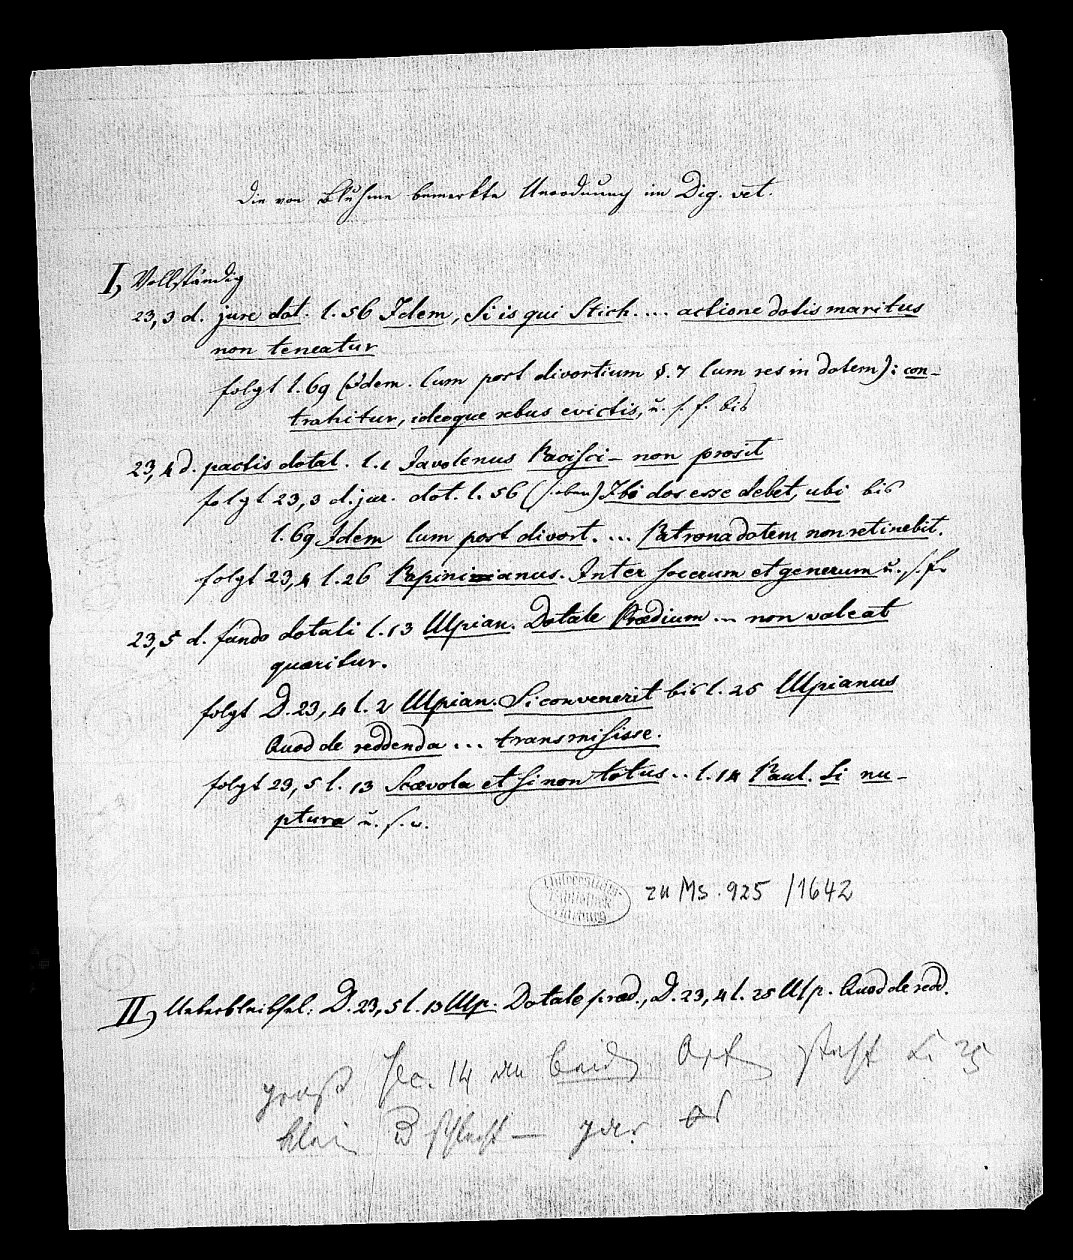 Die von Bluhme bemerkte Unordnung im Dig. vet.
I, Vollständig
23,3 d. jure dot. l. 56 Idem, Si is qui Stich. .... actione dotis maritus
non teneatur
folgt l. 69 (Idem. Cum post divortium §. 7 Cum res in dotem): con-
trahitur, ideoque rebus evictis, u. s. f. bis
23,4 d. pactis dotal. l. 1 Javolenus Pacisci – non prosit
folgt 23,3 d. jur. dot. l. 56 (sieben) Ibi dos esse debet, ubi bis
l. 69 Idem Cum post divort. ... Patrona dotem non retinebit.
folgt 23,4 l. 26 Papinianus. Inter socerum et generum u. s. f.
23,5 d. fundo dotali l. 13 Ulpian. Dotale Prædium ... non valeat
quæritur.
folgt D. 23,4 l. 2 Ulpian. Si convenerit bis l. 25 Ulpianus
Quod de reddenda ... transmisisse.
folgt 23,5 l. 13 Scævola et si non totus .. l. 14 Paul. Si nu-
ptura u. s. w.
Universitäts-
bibliothek
zu Ms. 925 /1642
II, Ueberbleibsel: D. 23,5 l. 13 Ulp. Dotale præd., D. 23,4 l. 25 Ulp. Quod de redd.
14 steht
klein schlecht –